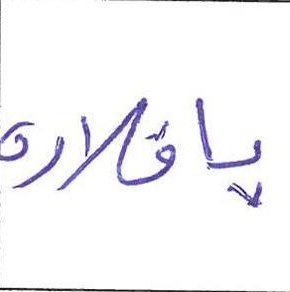 پاقلاره